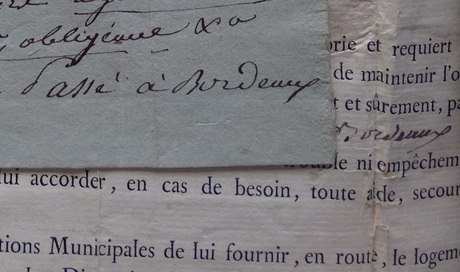 obligeance &a
Passé à Bordeaux
prie et requiert
de maintenir l'o
t et sûrement, pa
Bordeaux
trouble ni empêchem
lui accorder, en cas de besoin, toute aide, secour
tions Municipales de lui fournir, en route, le logeme